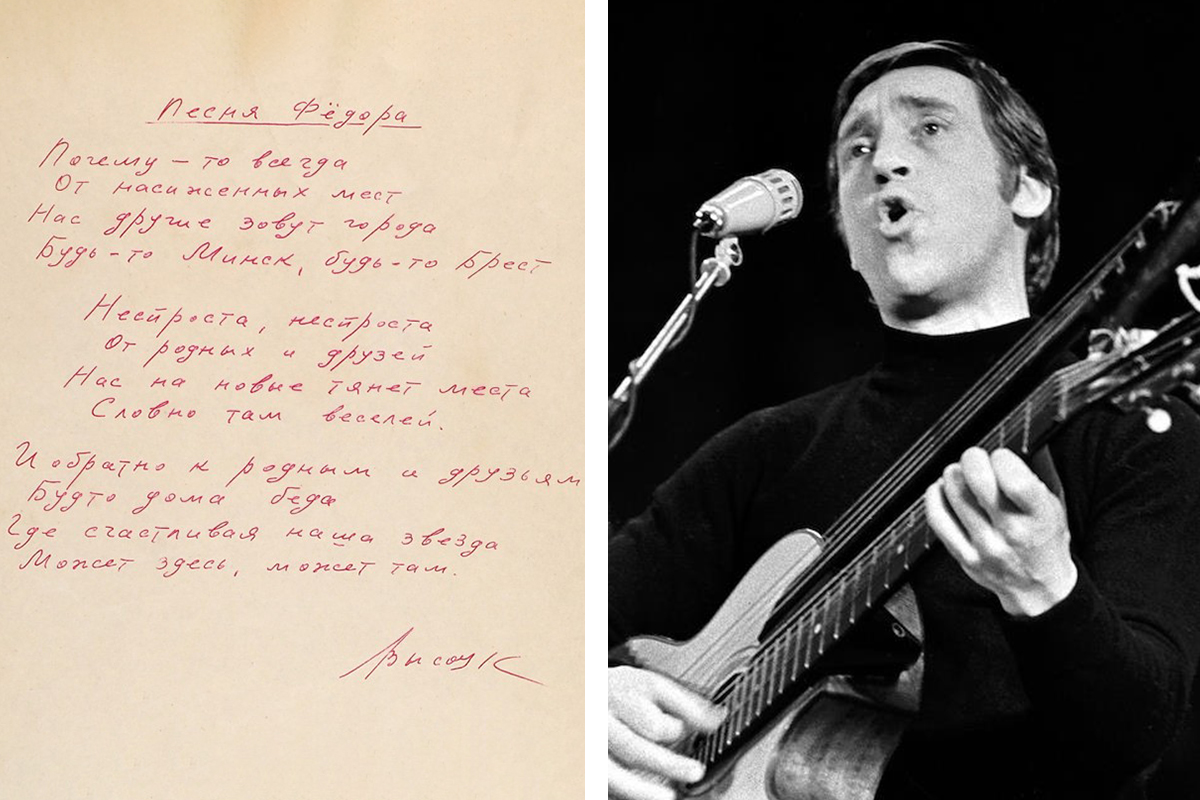 Песня Фёдора
Почему-то всегда
От насиженных мест
Нас другие зовут города
Будь-то Минск, будь-то Брест
Неспроста, неспроста
От родных и друзей
Нас на новые тянет места
Словно там веселей.
И обратно к родным и друзьям
Будто дома беда
Где счастливая наша звезда
Может здесь, может там.
Высоц